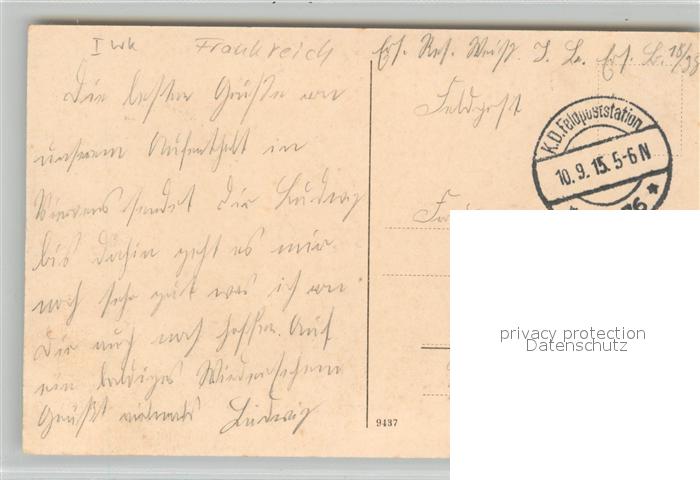 I WK Frankreich
Ers. Res. Weiß. I. B. Ers. B. 18/
Feldpost
K.D. Feldpoststation
10.9.15. 5-6 N
* 76 *
Die besten Grüße von
unserem Aufenthalt in
sendet Dir Ludwig
bis dahin geht es mir
noch sehr gut was ich von
Dir auch noch hoffe. Auf
ein baldiges Wiedersehen
Grüßt vielmals Ludwig
9437
privacy protection
Datenschutz